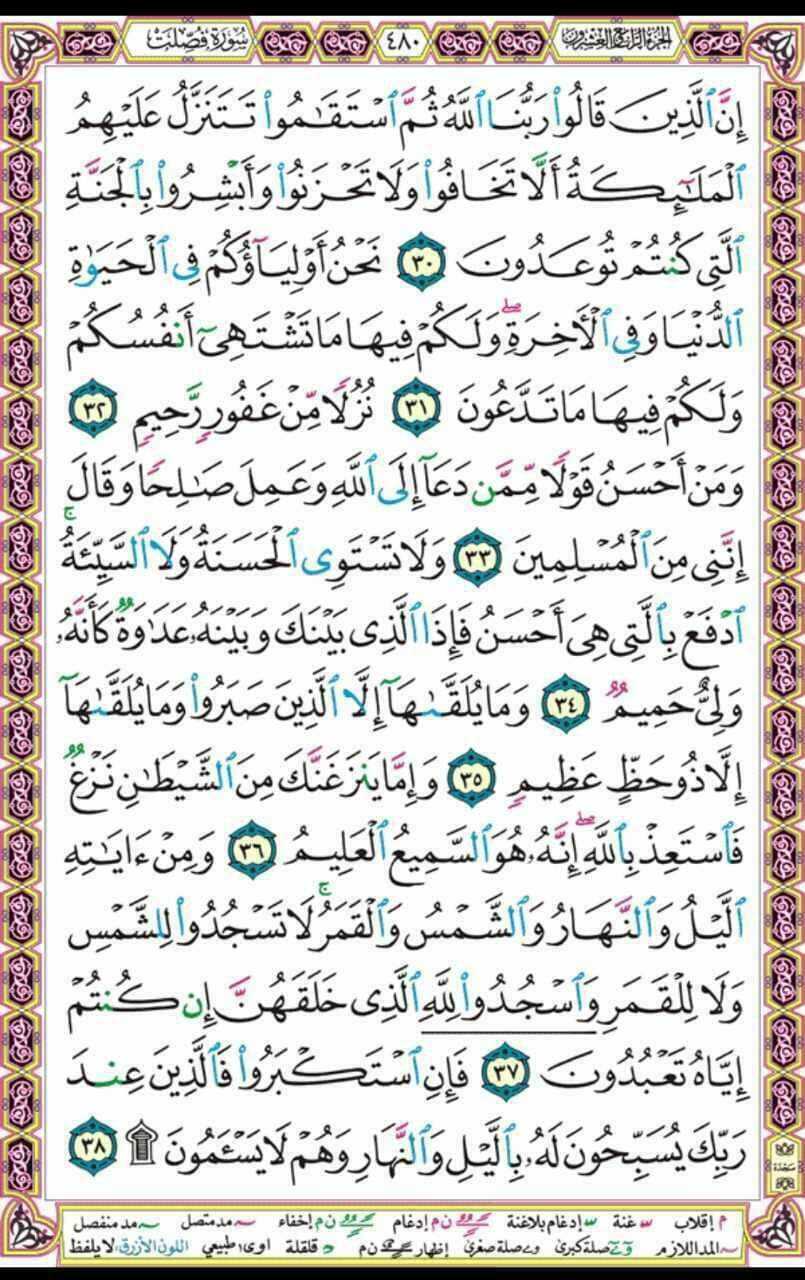 الجزء الرابع والعشرون
٤٨٠
سُورَةُ فُصِّلَتْ
إِنَّ ٱلَّذِينَ قَالُواْ رَبُّنَا ٱللَّهُ ثُمَّ ٱسْتَقَٰمُواْ تَتَنَزَّلُ عَلَيْهِمُ
ٱلْمَلَٰٓئِكَةُ أَلَّا تَخَافُواْ وَلَا تَحْزَنُواْ وَأَبْشِرُواْ بِٱلْجَنَّةِ
ٱلَّتِى كُنتُمْ تُوعَدُونَ ٣٠ نَحْنُ أَوْلِيَآؤُكُمْ فِى ٱلْحَيَوٰةِ
ٱلدُّنْيَا وَفِى ٱلْأَخِرَةِۖ وَلَكُمْ فِيهَا مَا تَشْتَهِىٓ أَنفُسُكُمْ
وَلَكُمْ فِيهَا مَا تَدَّعُونَ ٣١ نُزُلًا مِّنْ غَفُورٍ رَّحِيمٍ ٣٢
وَمَنْ أَحْسَنُ قَوْلًا مِّمَّن دَعَآ إِلَى ٱللَّهِ وَعَمِلَ صَٰلِحًا وَقَالَ
إِنَّنِى مِنَ ٱلْمُسْلِمِينَ ٣٣ وَلَا تَسْتَوِى ٱلْحَسَنَةُ وَلَا ٱلسَّيِّئَةُۚ
ٱدْفَعْ بِٱلَّتِى هِىَ أَحْسَنُ فَإِذَا ٱلَّذِى بَيْنَكَ وَبَيْنَهُۥ عَدَٰوَةٌ كَأَنَّهُۥ
وَلِىٌّ حَمِيمٌ ٣٤ وَمَا يُلَقَّىٰهَآ إِلَّا ٱلَّذِينَ صَبَرُواْ وَمَا يُلَقَّىٰهَآ
إِلَّا ذُو حَظٍّ عَظِيمٍ ٣٥ وَإِمَّا يَنزَغَنَّكَ مِنَ ٱلشَّيْطَٰنِ نَزْغٌ
فَٱسْتَعِذْ بِٱللَّهِۖ إِنَّهُۥ هُوَ ٱلسَّمِيعُ ٱلْعَلِيمُ ٣٦ وَمِنْ ءَايَٰتِهِ
ٱلَّيْلُ وَٱلنَّهَارُ وَٱلشَّمْسُ وَٱلْقَمَرُۚ لَا تَسْجُدُواْ لِلشَّمْسِ
وَلَا لِلْقَمَرِ وَٱسْجُدُواْ لِلَّهِ ٱلَّذِى خَلَقَهُنَّ إِن كُنتُمْ
إِيَّاهُ تَعْبُدُونَ ٣٧ فَإِنِ ٱسْتَكْبَرُواْ فَٱلَّذِينَ عِندَ
رَبِّكَ يُسَبِّحُونَ لَهُۥ بِٱلَّيْلِ وَٱلنَّهَارِ وَهُمْ لَا يَسْـَٔمُونَ ۩ ٣٨
سجدة
م إقلاب غنة إدغام بلاغنة ن م إدغام ن م إخفاء مد متصل مد منفصل
المد اللازم صلة كبرى صلة صغرى إظهار ن م قلقلة اوى طبيعي اللون الأزرق: لا يلفظ